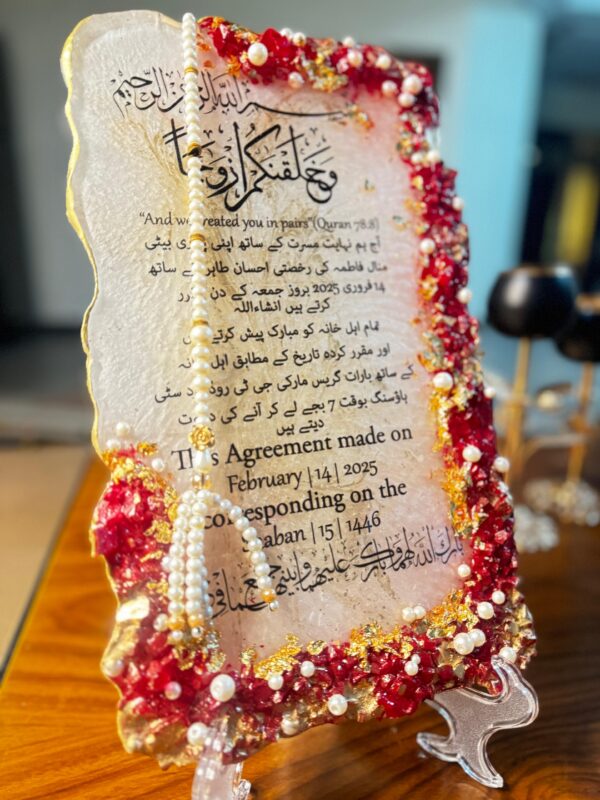 بسم الله الرحمن الرحيم
وَخَلَقْنَكُمْ أَزْوَجًا
“And we created you in pairs”(Quran 78:8)
آج ہم نہایت مسرت کے ساتھ اپنی بیٹی
منال فاطمہ کی رخصتی احسان طاہر کے ساتھ
14 فروری 2025 بروز جمعہ کے دن
کرتے ہیں انشاءاللہ
تمام اہل خانہ کو مبارک پیش کرتے
اور مقرر کردہ تاریخ کے مطابق اہل خانہ
کے ساتھ بارات گریس مارکی جی ٹی روڈ سٹی
ہاؤسنگ بوقت 7 بجے لے کر آنے کی دعوت
دیتے ہیں
This Agreement made on
February |14| 2025
corresponding on the
Shaban |15| 1446
بارك الله لهما وبارك عليهما وجمع بينهما في